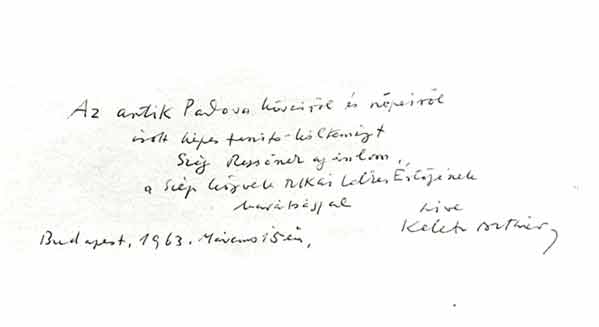 Az antik Padova köveiről és népeiről
írott képes
Szíj Rezsőnek ajánlom,
a Szép könyvek ritka lelkes Értőjének
barátsággal
híve
Keleti Arthur
Budapest, 1963. Március 15én,